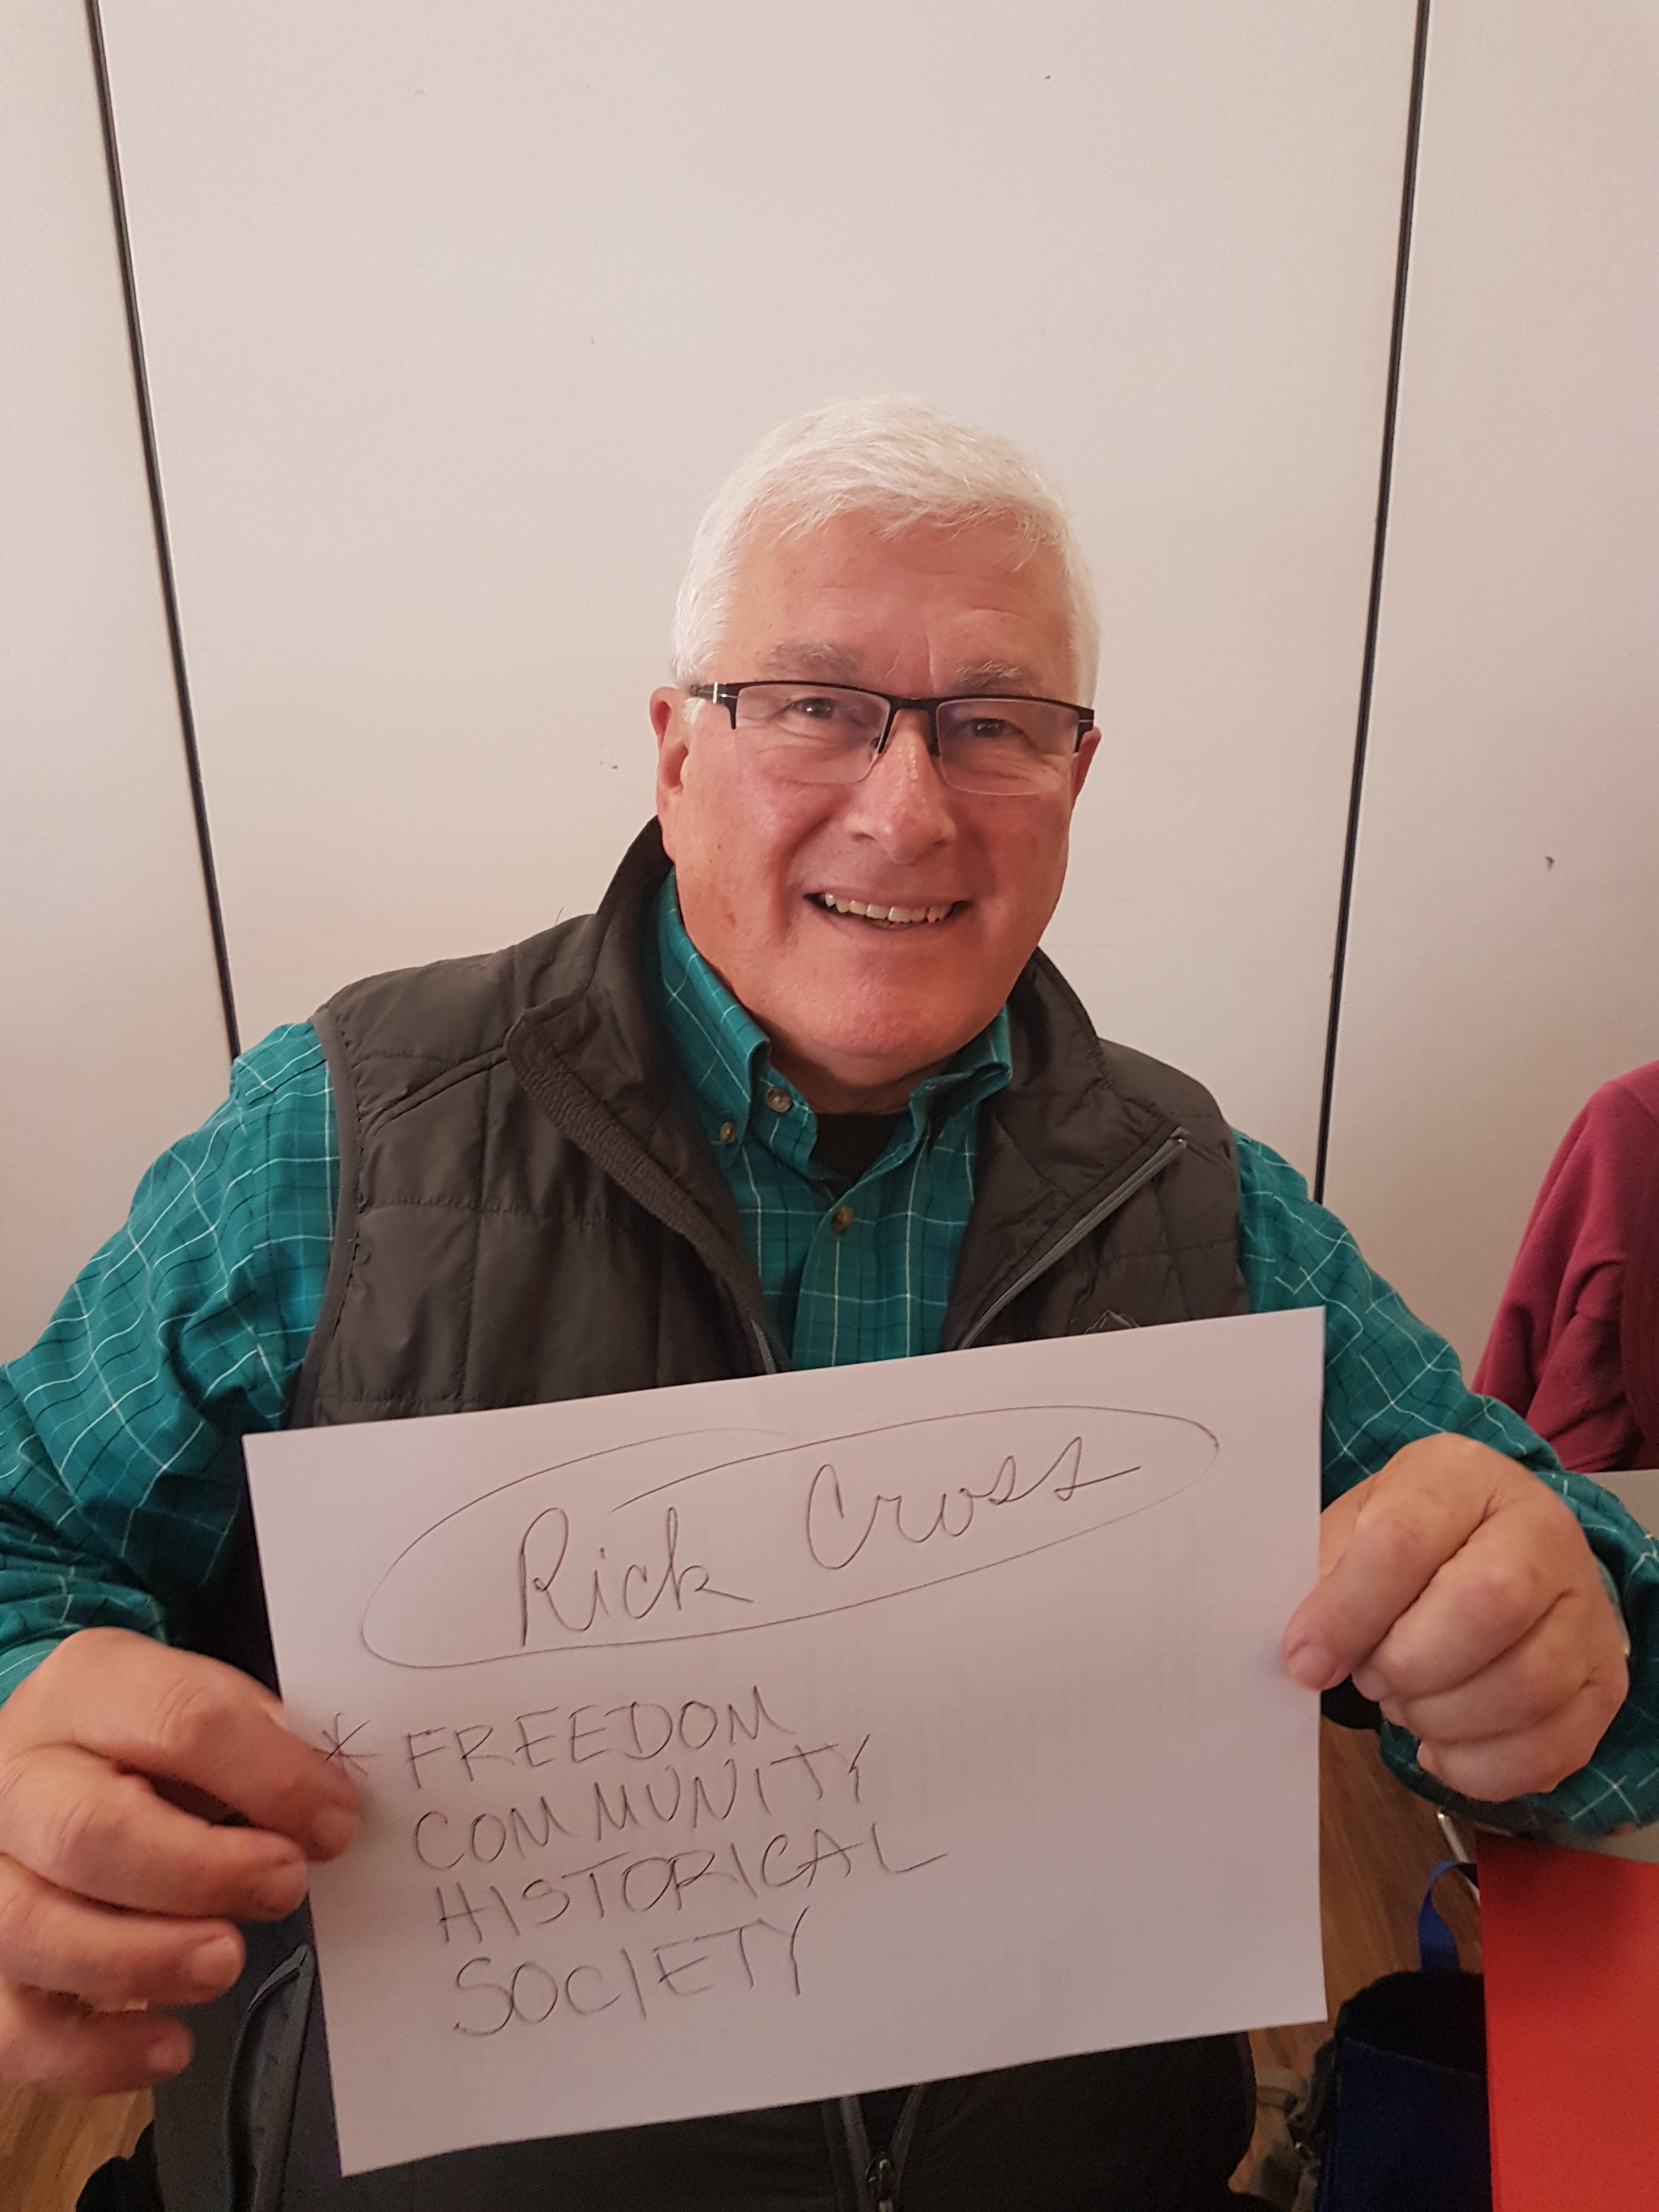 Rick Cross
* FREEDOM
COMMUNITY
HISTORICAL
SOCIETY